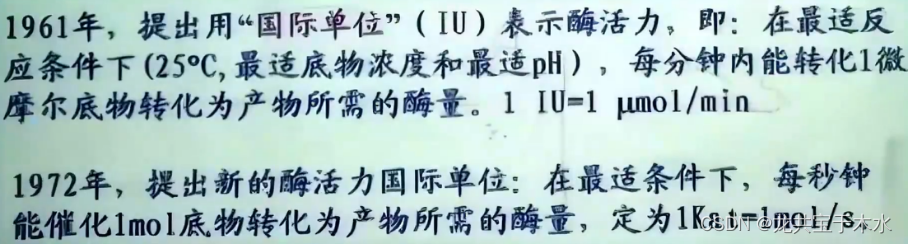 1961年，提出用“国际单位”（IU）表示酶活力，即：在最适反
应条件下(25℃,最适底物浓度和最适pH），每分钟内能转化1微
摩尔底物转化为产物所需的酶量。1 IU=1 μmol/min
1972年，提出新的酶活力国际单位：在最适条件下，每秒钟
能催化1mol底物转化为产物所需的酶量，定为1Kat=1mol/s。